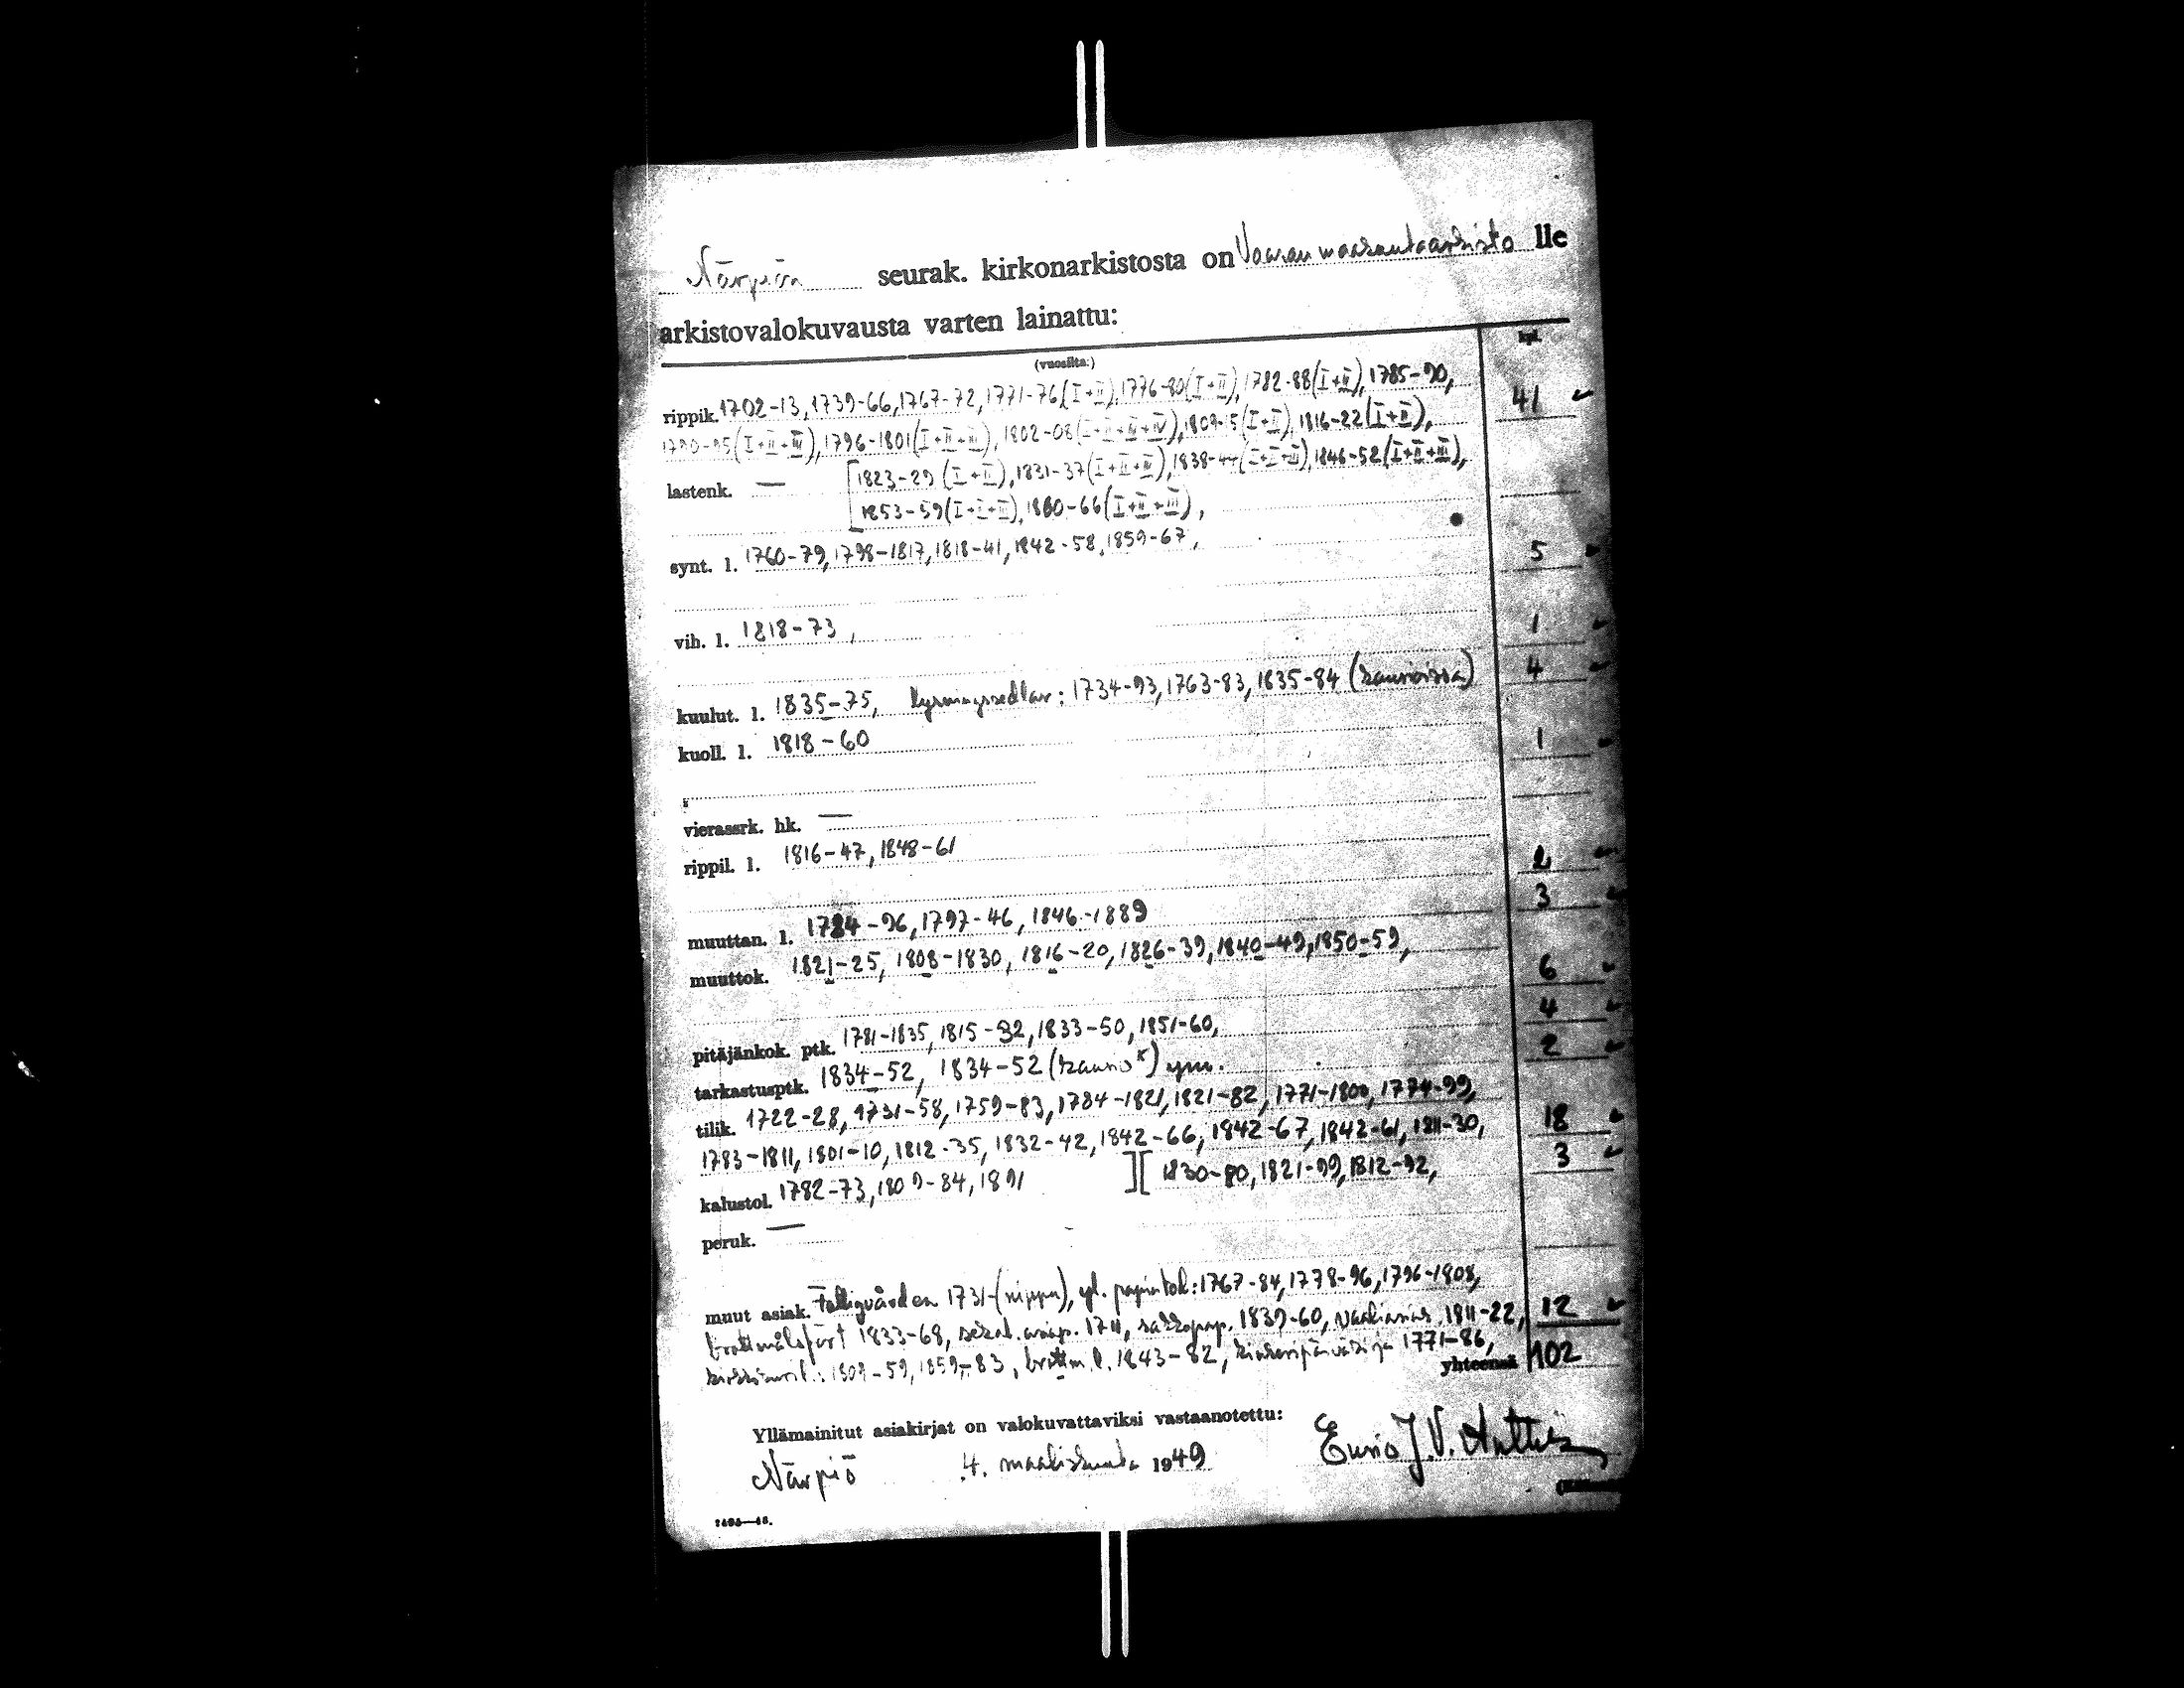 Närpiön seurak. kirkonarkistosta on Vaasan maakuntaarkisto lle
arkistovalokuvausta varten lainattu:
(vuosilta:) kpl.
rippik. 1702-13, 1739-66, 1767-72, 1771-76 (I+II), 1776-80 (I+II), 1782-88 (I+II), 1785-90, 41
1790-95 (I+II+III), 1796-1801 (I+II+III), 1802-08 (I+II+III+IV), 1809-15 (I+II), 1816-22 (I+II),
lastenk. — [1823-29 (I+II), 1831-37 (I+II+III), 1838-44 (I+II+III), 1846-52 (I+II+III),
1853-59 (I+II+III), 1860-66 (I+II+III),
synt. l. 1760-79, 1798-1817, 1818-41, 1842-58, 1859-67, 5
vih. l. 1818-73, 1
kuulut. l. 1835-75, lysningssedlar: 1734-93, 1763-83, 1835-84 (kansioissa) 4
kuoll. l. 1818-60 1
vierassrk. hk. —
rippil. l. 1816-47, 1848-61 2
muuttan. l. 1784-96, 1797-46, 1846-1889 3
muuttok. 1821-25, 1808-1830, 1816-20, 1826-39, 1840-49, 1850-59, 6
pitäjänkok. ptk. 1781-1835, 1815-32, 1833-50, 1851-60, 4
tarkastusptk. 1834-52, 1834-52 (kansio) ym. 2
tilik. 1722-28, 1731-58, 1759-83, 1784-1821, 1821-82, 1771-1800, 1774-99, 18
1783-1811, 1801-10, 1812-35, 1832-42, 1842-66, 1842-67, 1842-61, 1811-30,
kalustol. 1782-73, 1809-84, 1891 ][ 1830-80, 1821-99, 1812-92, 3
peruk. —
muut asiak. Fattigvården 1731- (nippu), : 1767-84, 1778-96, 1796-1808, 12
1833-68, sekal. 1839-60, 1811-22,
: 1809-59, 1859-83, brottm. l. 1843-82, 1771-86, yhteensä 102
Yllämainitut asiakirjat on valokuvattaviksi vastaanotettu:
Närpiö 4. maaliskuuta 1949 J. V.